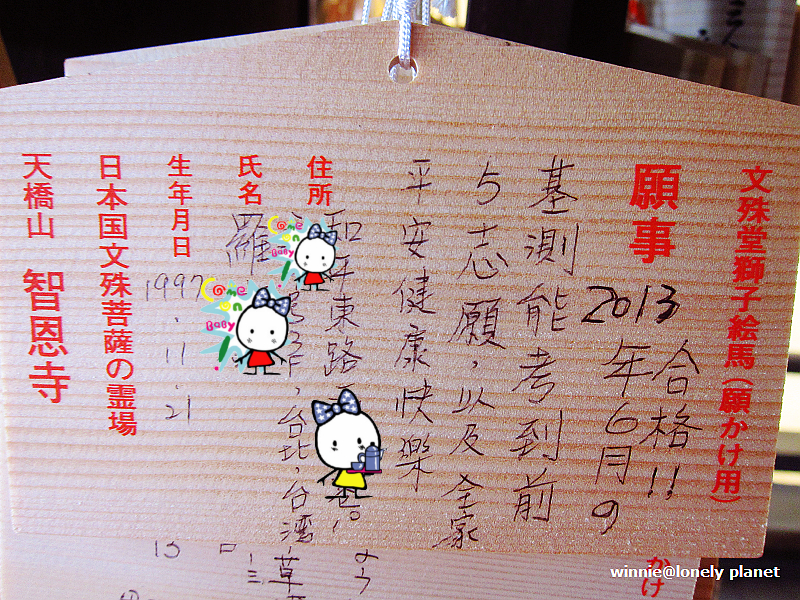 文殊堂獅子絵馬(願かけ用)
願事
2013
年6月の
合格!!
基測能考到前
5志願，以及全家
平安健康快樂
住所
和平東路
台北，台湾
氏名
羅
生年月日
1997.11.21
日本国文殊菩薩の霊場
天橋山 智恩寺
Come on Baby!
Come on Baby!
かけ
よう
草
15
winnie@lonely planet